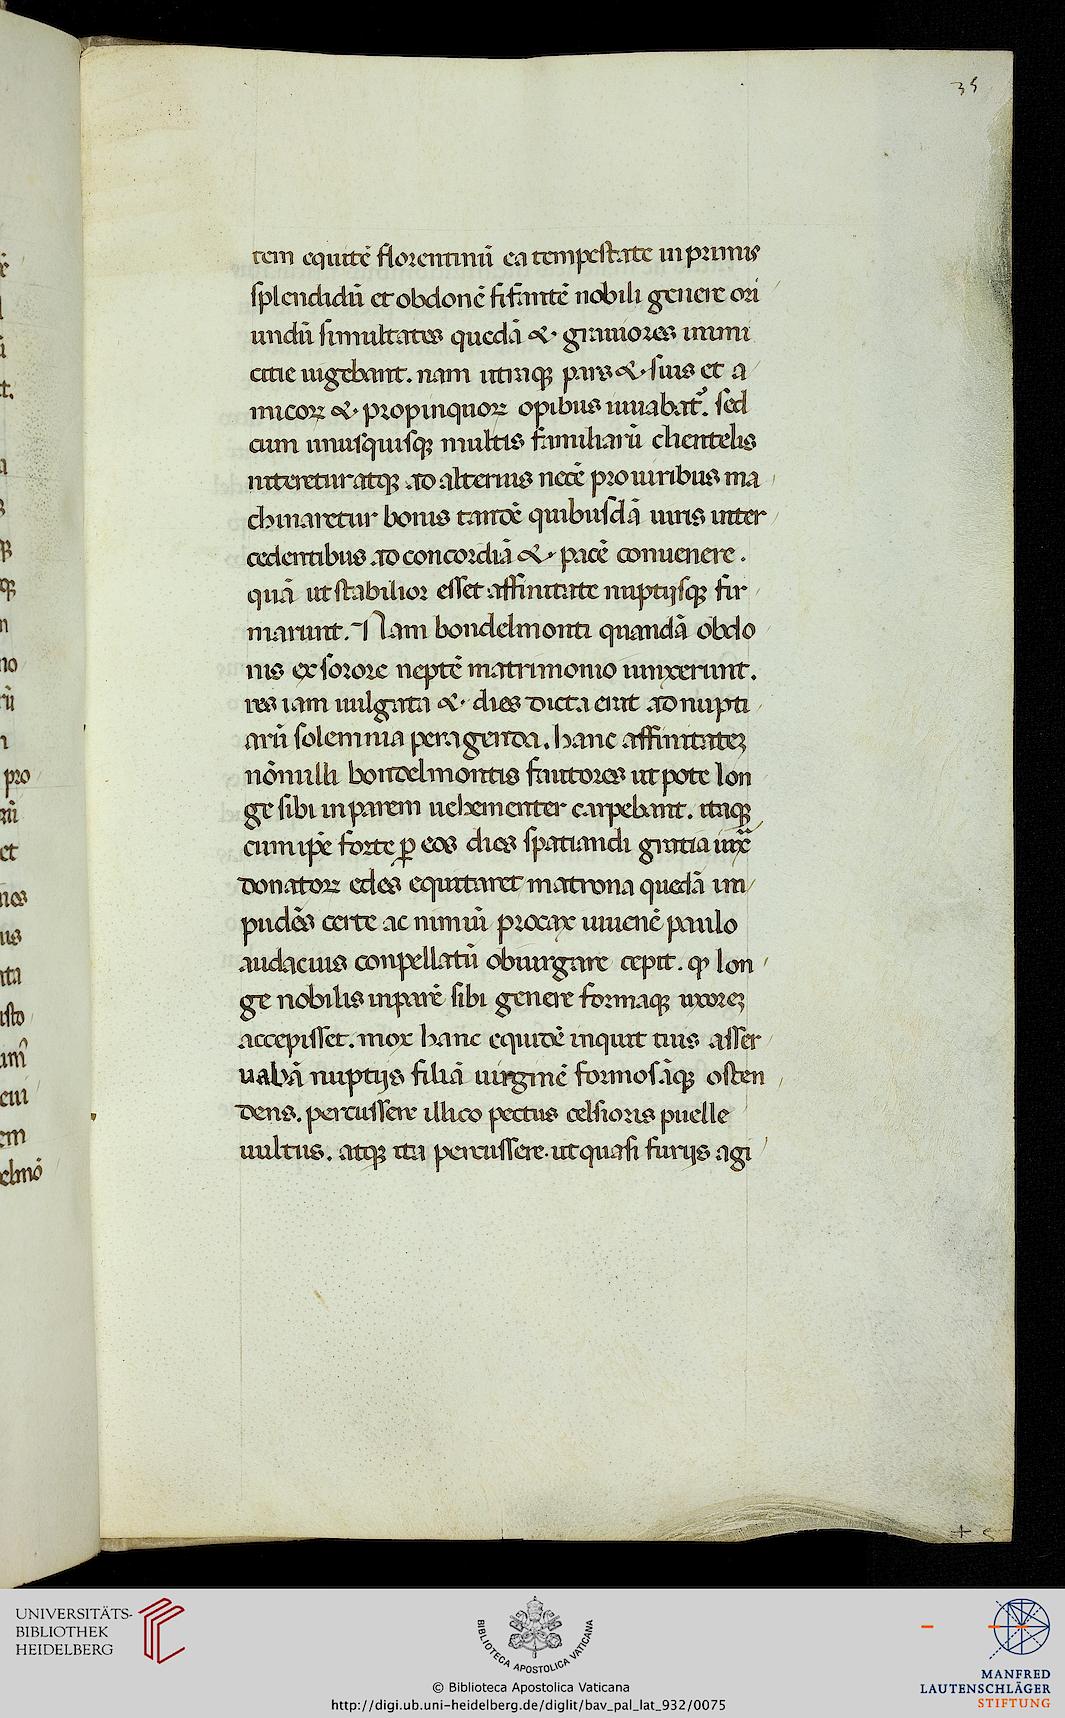 35
tem equitē florentinū ea tempestate in primis
splendidū et obdonē fifantē nobili genere ori
undū simultates quedā &· grauiores inimi
citie uigebant. nam utraqꝫ pars &· suis et a
micoꝝ &· propinquoꝝ opibus iuuabat᷑. sed
cum unusquisqꝫ multis familiarū clientelis
niteretur atqꝫ ad alterius necē pro uiribus ma
chinaretur bonis tandē quibusdā uiris inter
cedentibus ad concordiā &· pacē conuenere.
quā ut stabilior esset affinitate nuptijsqꝫ fir
marunt. Nam bondelmonti quandā obdo
nis ex sorore neptē matrimonio iunxerunt.
res iam uulgata &· dies dicta erat ad nupti
arū solemnia peragenda. hanc affinitateꝫ
nōnulli bondelmontis fautores ut pote lon
ge sibi inparem uehementer carpebant. itaqꝫ
cum ip̄e forte ꝑ eos dies spatiandi gratia iuxᷓ
donatoꝝ edes equitaret matrona quedā im
pudēs certe ac nimiū procax iuuenē paulo
audacius conpellatū obiurgare cepit. ꝙ lon
ge nobilis inparē sibi genere formaqꝫ uxoreꝫ
accepisset. mox hanc equidē inquit tuis asser
uabā nuptijs filiā uirginē formosāqꝫ osten
dens. percussere illico pectus celsioris puelle
uultus. atqꝫ ita percussere. ut quasi furijs agi
UNIVERSITÄTS-
BIBLIOTHEK
HEIDELBERG
BIBLIOTECA APOSTOLICA VATICANA
© Biblioteca Apostolica Vaticana
http://digi.ub.uni-heidelberg.de/diglit/bav_pal_lat_932/0075
MANFRED
LAUTENSCHLÄGER
STIFTUNG